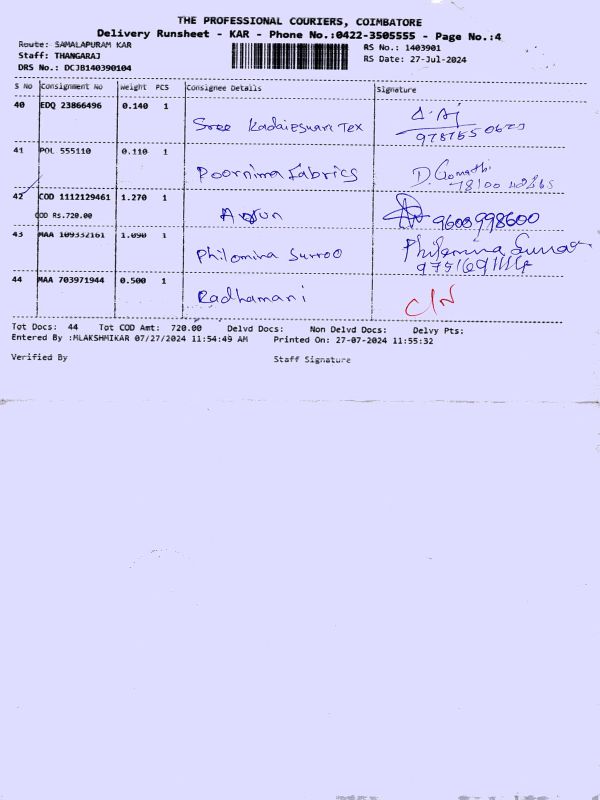 THE PROFESSIONAL COURIERS, COIMBATORE
Delivery Runsheet - KAR - Phone No.:0422-3505555 - Page No.:4
Route: SAMALAPURAM KAR
RS No.: 1403901
Staff: THANGARAJ
RS Date: 27-Jul-2024
DRS No.: DCJB140390104
S No Consignment No Weight PCS Consignee Details Signature
40 EDQ 23866496 0.140 1
Sree Kadaieswari Tex
41 POL 555110 0.110 1
Poornima Fabrics D. Gomathi
42 COD 1112129461 1.270 1
COD RS.720.00 Arjun 9600998600
43 MAA 109332161 1.090 1
Philomina Surroo
44 MAA 703971944 0.500 1
Radhamani C/N
Tot Docs: 44 Tot COD Amt: 720.00 Delvd Docs: Non Delvd Docs: Delvy Pts:
Entered By :MLAKSHMIKAR 07/27/2024 11:54:49 AM Printed On: 27-07-2024 11:55:32
Verified By Staff Signature